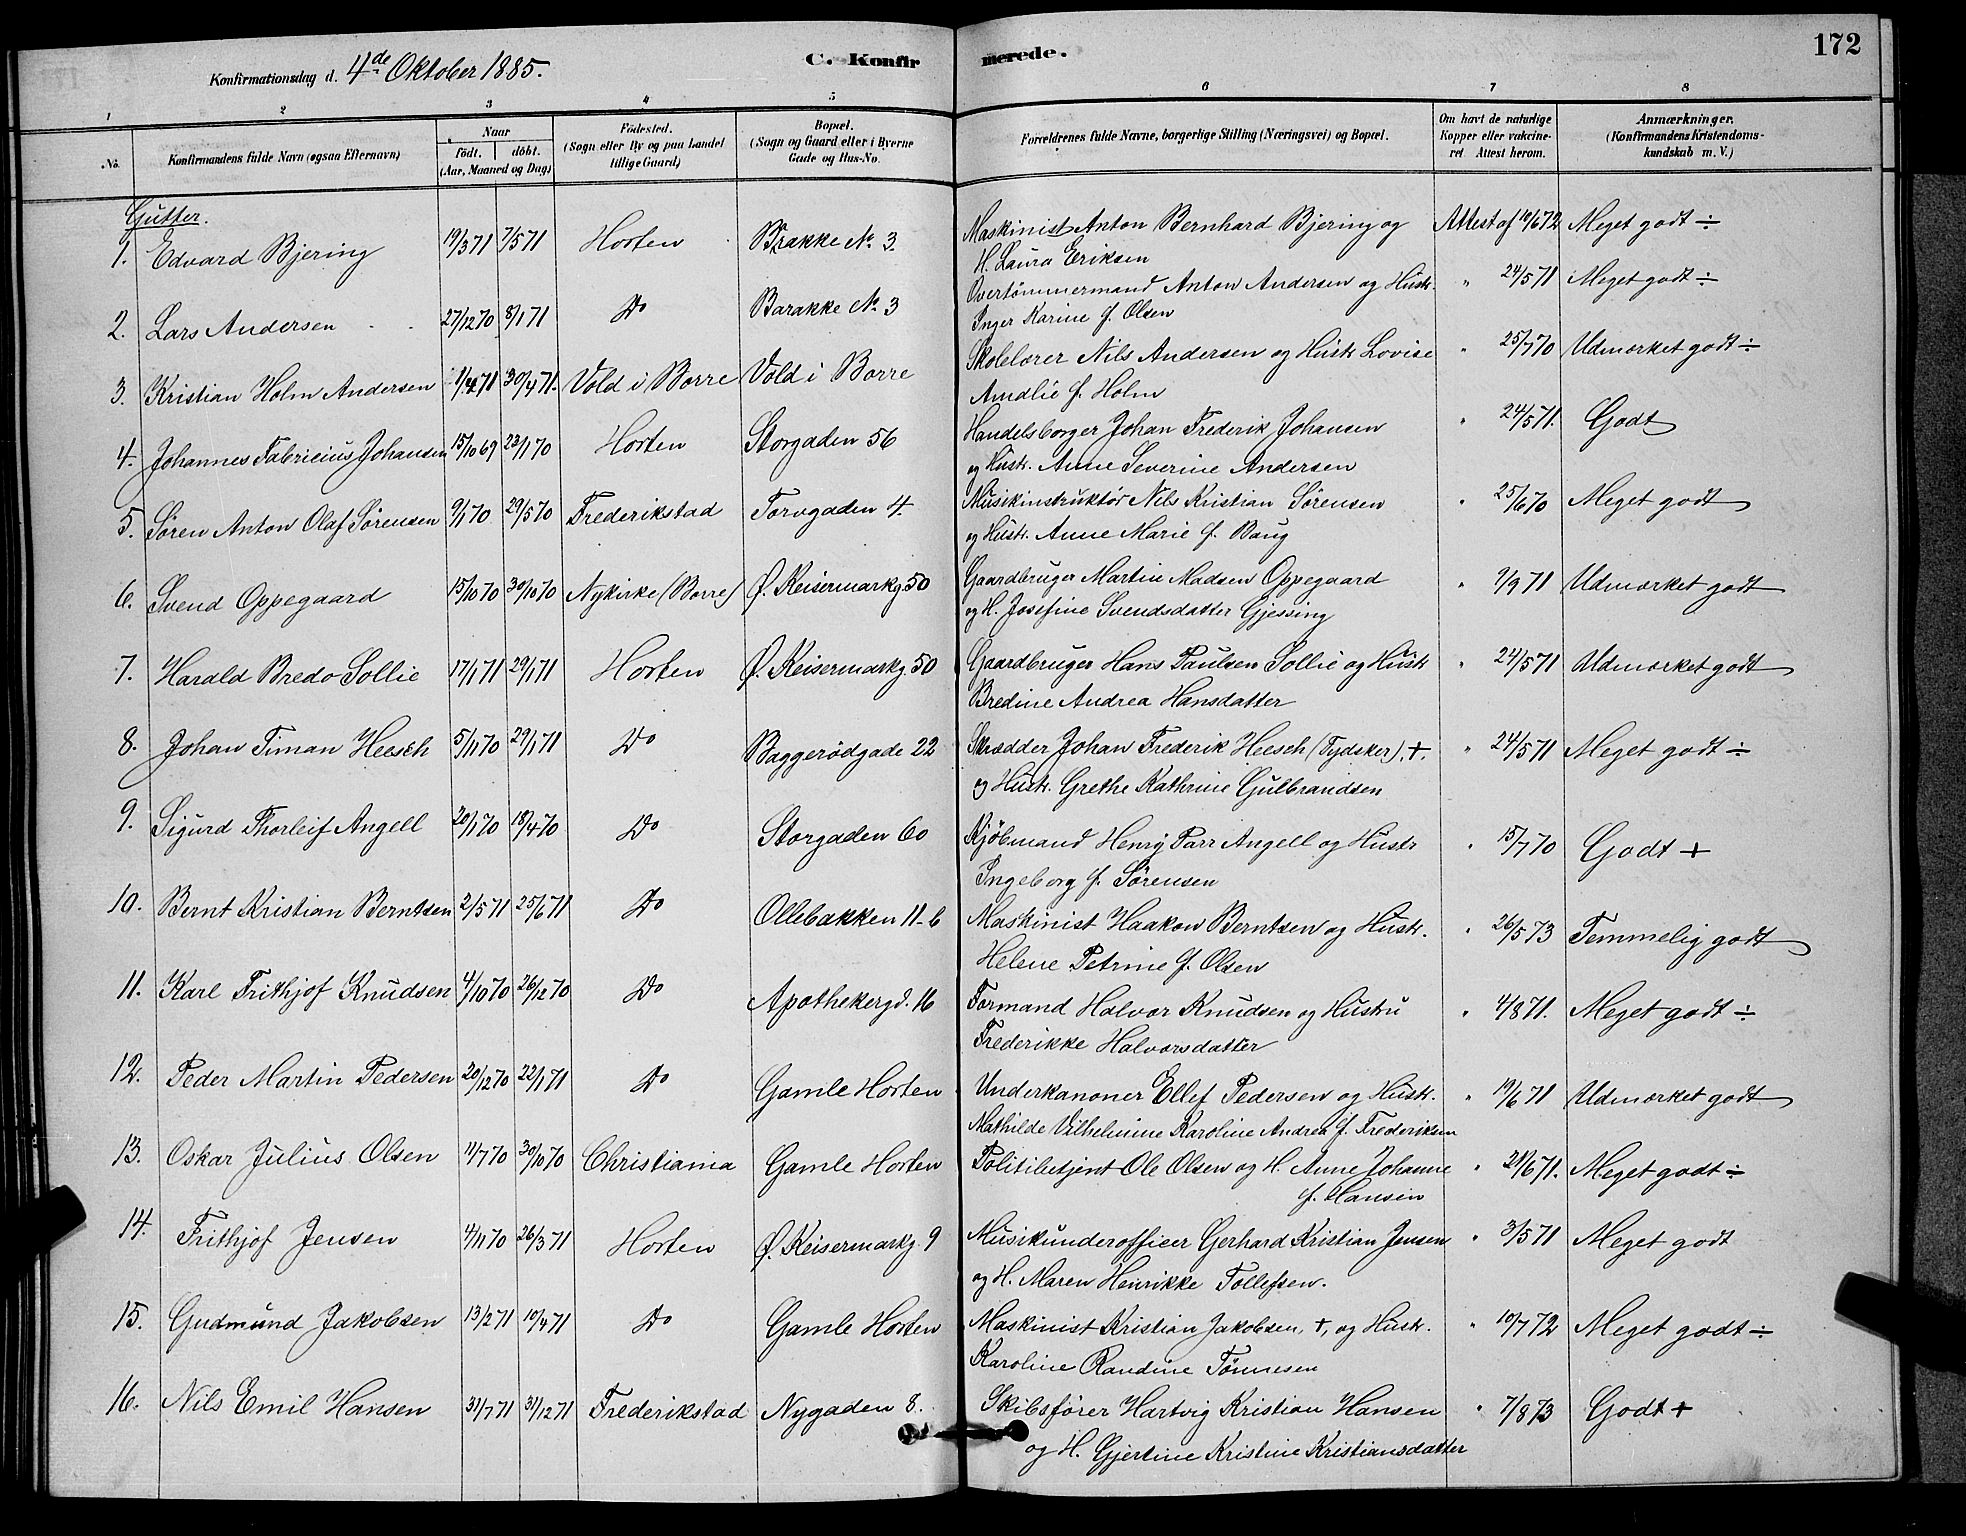 172
Konfirmationsdag d. 4de Oktober 1885.
C. Konfirmerede.
1 2 3 4 5 6 7 8
No.
Konfirmandens fulde Navn (ogsaa Efternavn)
Naar
födt. döbt.
(Aar, Maaned og Dag)
Födested.
(Sogn eller By og paa Landet
tillige Gaard)
Bopæl.
(Sogn og Gaard eller i Byerne
Gade og Hus-No.
Forældrenes fulde Navne, borgerlige Stilling (Næringsvei) og Bopæl.
Om havt de naturlige
Kopper eller vakcine-
ret Attest herom.
Anmærkninger.
(Konfirmandens Kristendoms-
kundskab m. V.)
Gutter.
1. Edvard Bjering 19/3 71 7/5 71 Horten Brakke No. 3. Maskinist Anton Bernhard Bjering og Attest af 10/6 72 Meget godt ÷
H. Laura Eriksen
2. Lars Andersen 27/12 70 8/1 71 Do Barakke No. 3 Overtömmermand Anton Andersen og Hustr. " 24/5 71 Meget godt ÷
Inger Karine f. Olsen
3. Kristian Holm Andersen 1/4 71 30/4 71. Vold i Borre Vold i Borre Skolelærer Nils Andersen og Hustr. Lovise " 25/7 70 Udmærket godt ÷
Amdlie f. Holm
4. Johannes Fabricius Johansen 15/10 69 23/1 70 Horten Storgaden 56 Handelsborger Johan Frederik Johansen " 24/5 71. Godt
og Hustr. Anne Severine Andersen
5. Søren Anton Olaf Sørensen 9/1 70 29/5 70 Frederikstad Torvgaden 4. Musikinstruktör Nils Kristian Sörensen " 25/6 70 Meget godt
og Hustr. Anne Marie f. Baug
6. Svend Oppegaard 15/10 70 30/10 70 Nykirke (Borre) Ø. Keisermarkg. 50 Gaardbruger Martin Madsen Oppegaard " 1/9 71 Udmærket godt
og H. Josefine Svendsdatter Gjessing
7. Harald Bredo Sollie 17/1 71 29/1 71 Horten Ø. Keisermarkg. 50 Gaardbruger Hans Paulsen Sollie og Hustr " 24/5 71 Udmærket godt
Bredine Andrea Hansdatter
8. Johan Timan Heesch 5/11 70 29/1 71 Do Baggerödgade 22 Skrædder Johan Frederik Heesch (Tydsker), +. " 24/5 71 Meget godt ÷
og Hustr. Grethe Kathrine Gulbrandsen
9. Sigurd Thorleif Angell 20/1 70 18/4 70 Do Storgaden 60 Kjöbmand Henry Parr Angell og Hustr " 15/7 70 Godt +
Ingeborg f. Sörensen
10. Bernt Kristian Berntsen 2/5 71 25/6 71 Do Ollebakken 11-6 Maskinist Haakon Berntsen og Hustr. " 26/5 73 Temmelig godt
Helene Petrine f. Olsen
11. Karl Frithjof Knudsen 4/10 70 26/12 70 Do Apothekergd. 16 Formand Halvor Knudsen og Hustru " 4/8 71. Meget godt ÷
Frederikke Halvorsdatter
12. Peder Martin Pedersen 20/12 70 22/1 71 Do Gamle Horten Underkanoner Ellef Pedersen og Hustr. " 19/6 71 Udmærket godt
Mathilde Vilhelmine Karoline Andrea f. Frederiksen
13. Oskar Julius Olsen 11/7 70 30/10 70 Christiania Gamle Horten Politibetjent Ole Olsen og H. Anne Johanne " 21/6 71. Meget godt ÷
f. Hansen
14. Frithjof Jensen 4/11 70 26/3 71 Horten Ø. Keisermarkg. 9 Musikunderofficer Gerhard Kristian Jensen " 3/5 71 Meget godt
og H. Maren Henrikke Tollefsen.
15. Gudmund Jakobsen 13/2 71 10/4 71 Do Gamle Horten Maskinist Kristian Jakobsen, +, og Hustr. " 10/7 72 Meget godt ÷
Karoline Randine Tönnesen
16. Nils Emil Hansen 31/7 71 31/12 71 Frederikstad Nygaden 8. Skibsförer Hartvig Kristian Hansen " 7/8 73 Godt +
og H. Gjertine Kristine Kristiansdatter